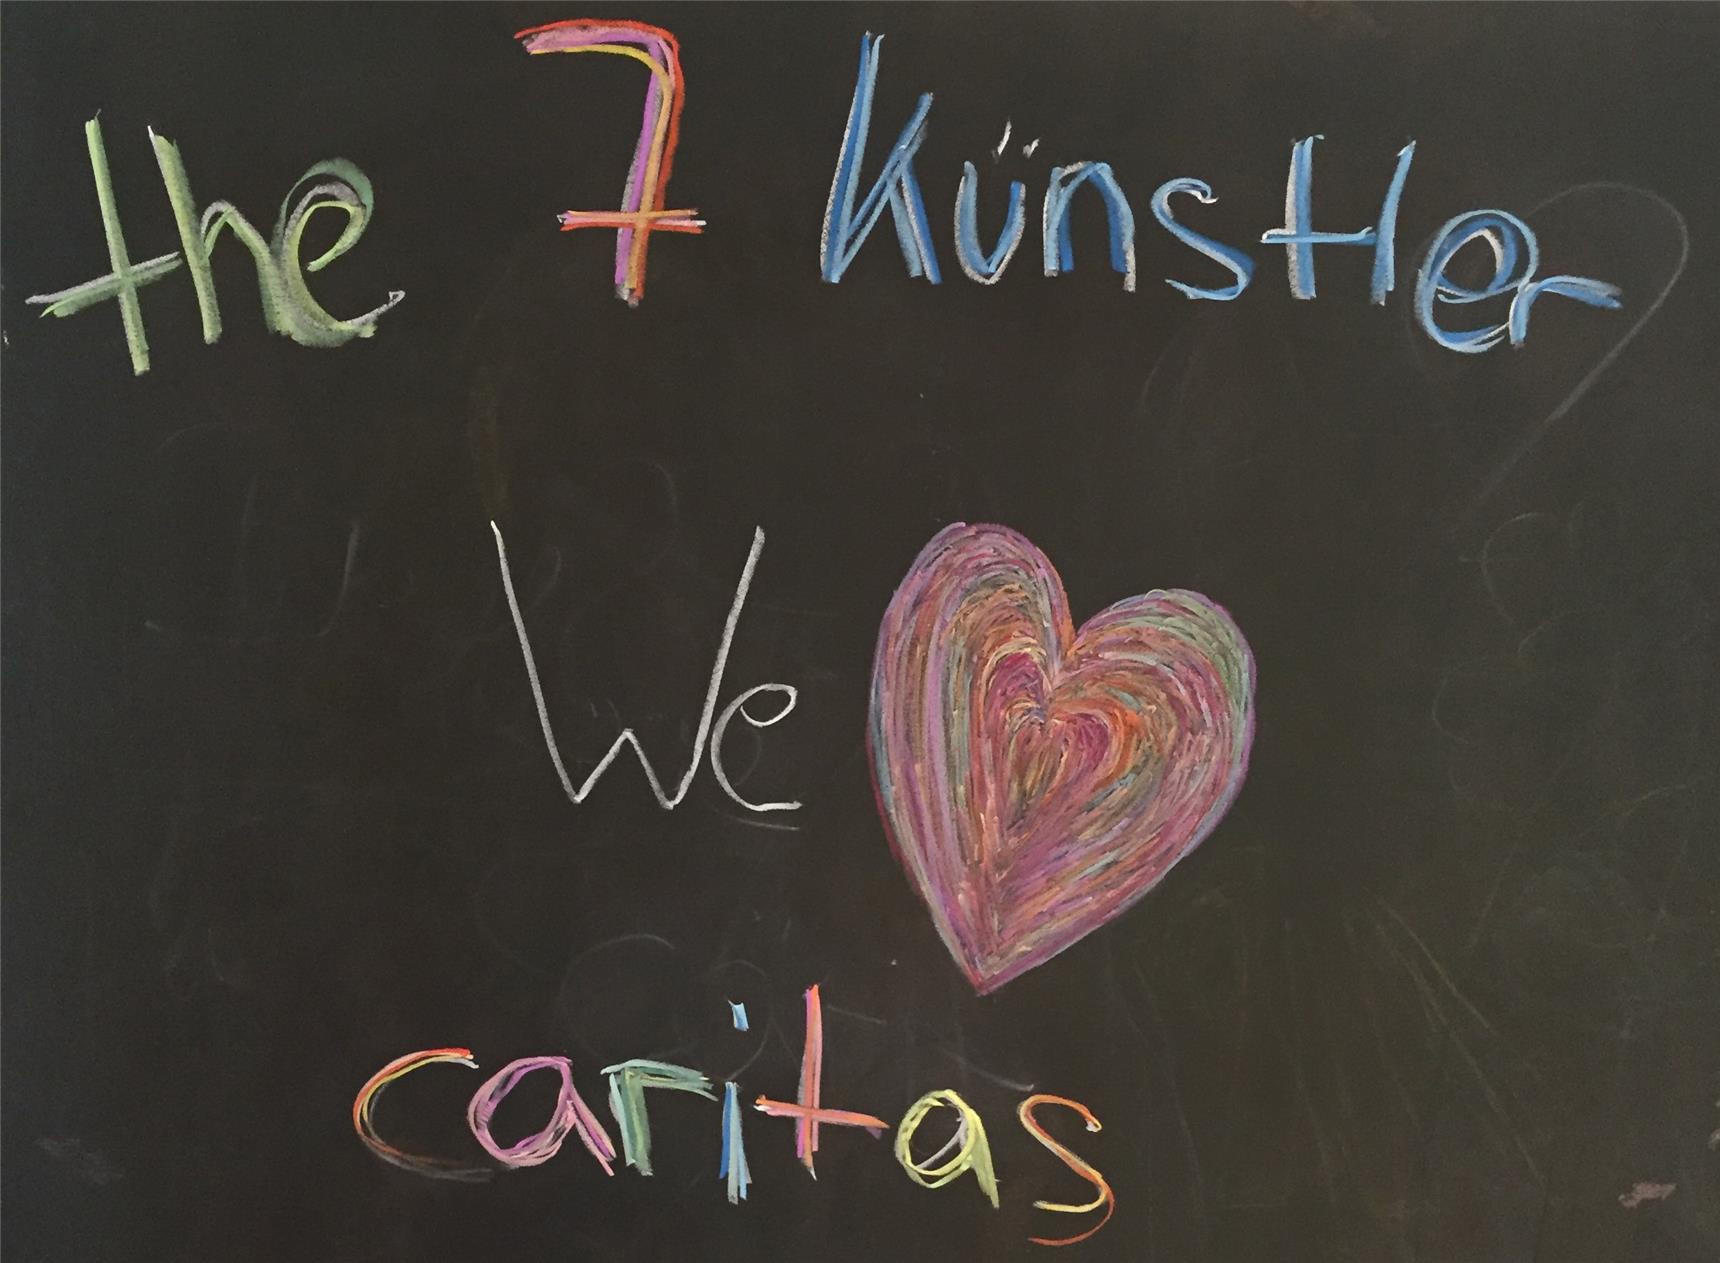 the 7 Künstler
We
caritas